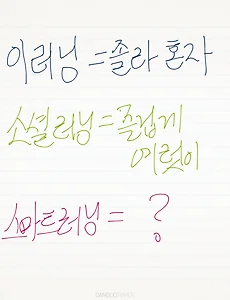 이러닝 = 졸라 혼자
소셜러닝 = 즐겁게
여럿이
스마트러닝 = ?